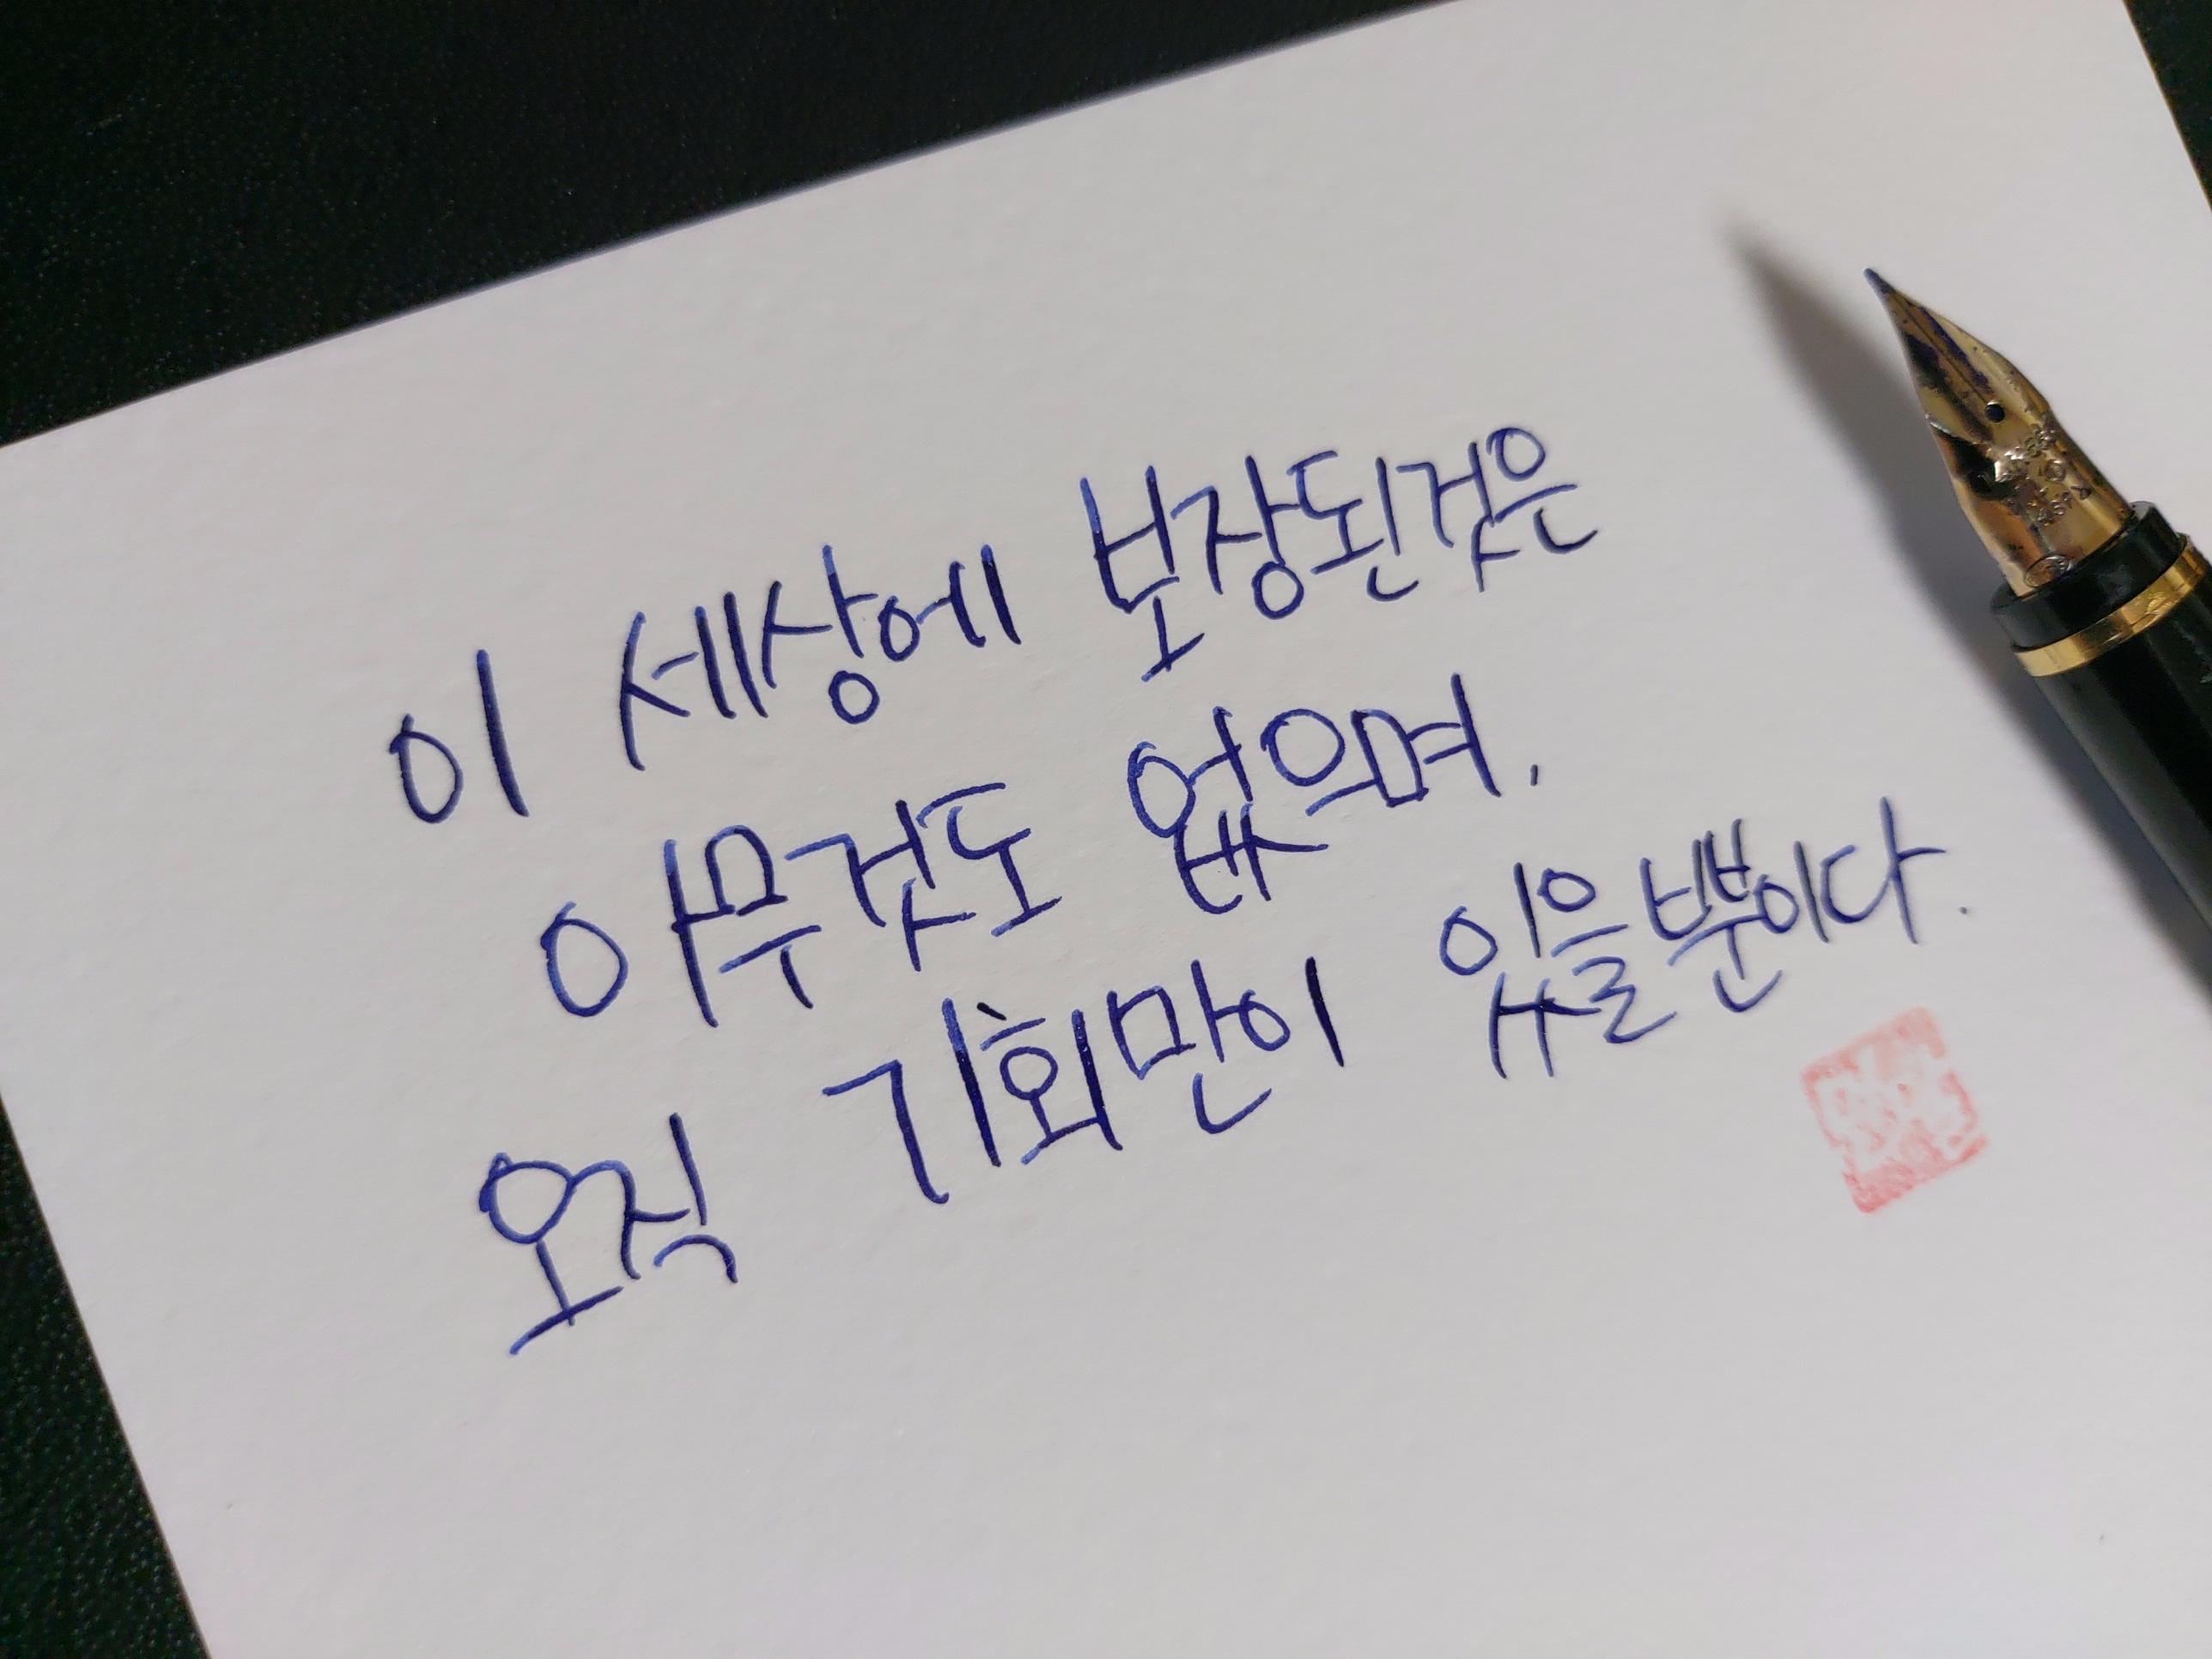 이 세상에 보장된것은
아무것도 없으며,
오직 기회만이 있을뿐이다.